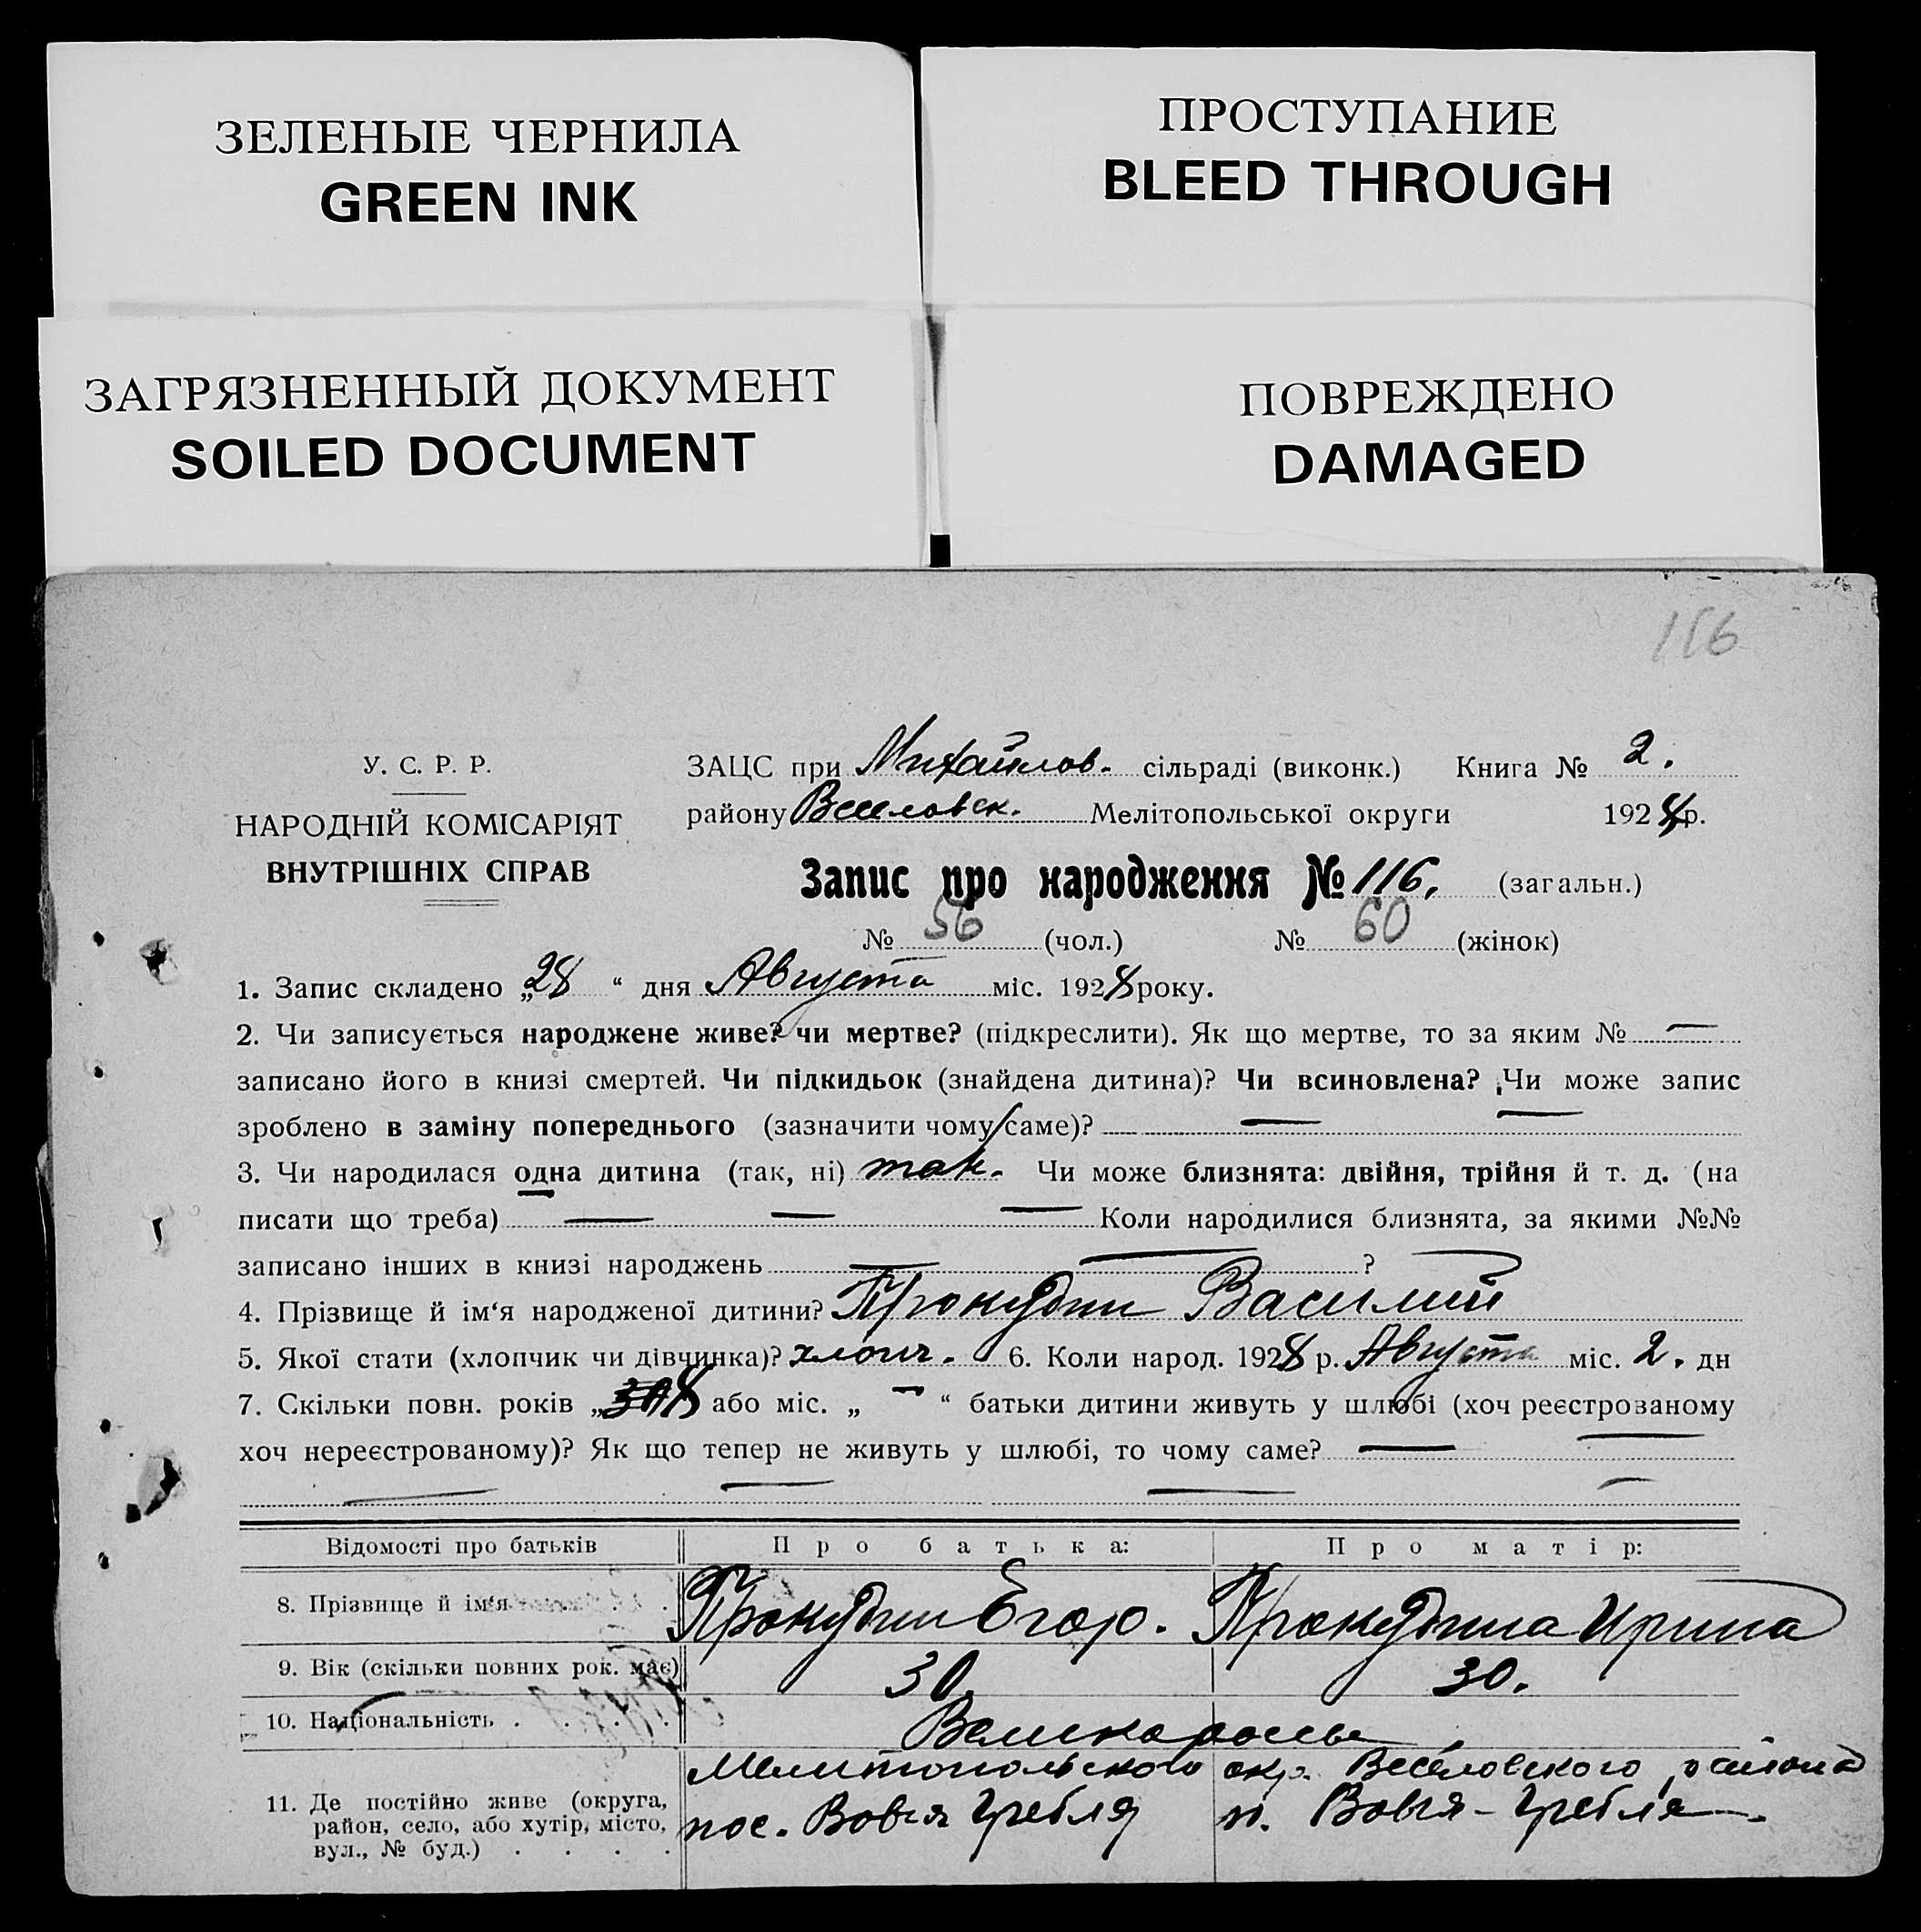 ЗЕЛЕНЫЕ ЧЕРНИЛА
GREEN INK
ПРОСТУПАНИЕ
BLEED THROUGH
ЗАГРЯЗНЕННЫЙ ДОКУМЕНТ
SOILED DOCUMENT
ПОВРЕЖДЕНО
DAMAGED
116
У. С. Р. Р.
НАРОДНІЙ КОМІСАРІЯТ
ВНУТРІШНІХ СПРАВ
ЗАЦС при Михайлов. сільраді (виконк.) Книга № 2.
району Веселовск. Мелітопольської округи 1928 р.
Запис про народження № 116. (загальн.)
№ 56 (чол.) № 60 (жінок)
1. Запис складено „28“ дня Августа міс. 1928 року.
2. Чи записується народжене живе? чи мертве? (підкреслити). Як що мертве, то за яким № —
записано його в книзі смертей. Чи підкидьок (знайдена дитина)? Чи всиновлена? Чи може запис
зроблено в заміну попереднього (зазначити чому саме)? — —
3. Чи народилася одна дитина (так, ні) так. Чи може близнята: двійня, трійня й т. д. (на
писати що треба) — — — Коли народилися близнята, за якими №№
записано інших в книзі народжень — — ?
4. Прізвище й ім‘я народженої дитини? Прокудин Василий
5. Якої стати (хлопчик чи дівчинка)? хлопч. 6. Коли народ. 1928 р. Августа міс. 2. дн
7. Скільки повн. років „ 8 або міс. „ — “ батьки дитини живуть у шлюбі (хоч реєстрованому
хоч нереєстрованому)? Як що тепер не живуть у шлюбі, то чому саме? — —
— — — —
Відомості про батьків Про батька: Про матір:
8. Прізвище й ім‘я . . . Прокудин Егор. Прокудина Ирина
9. Вік (скільки повних рок. має) 30. 30.
10. Національність . . . . Великороссы
11. Де постійно живе (округа, район, село, або хутір, місто, вул., № буд.) . . . .
Мелитопольского окр. Веселовского района
пос. Вовчя Гребля п. Вовчя - Гребля.